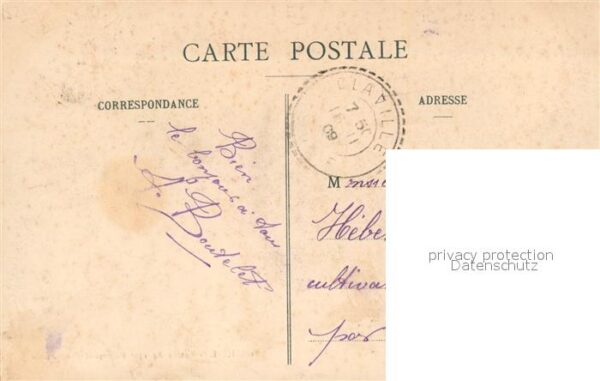 CARTE POSTALE
CORRESPONDANCE
ADRESSE
CLAVILLE
7 50
09
Bien
le bonjour à tous
A. Boutelet
Monsie
Hébe
cultiva
par
privacy protection
Datenschutz